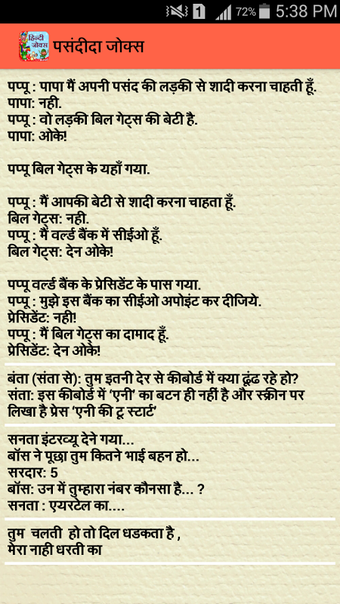 72% 5:38 PM
हिन्दी जोक्स
पसंदीदा जोक्स
पप्पू : पापा मैं अपनी पसंद की लड़की से शादी करना चाहती हूँ.
पापा: नही.
पप्पू : वो लड़की बिल गेट्स की बेटी है.
पापा: ओके!
पप्पू बिल गेट्स के यहाँ गया.
पप्पू : मैं आपकी बेटी से शादी करना चाहता हूँ.
बिल गेट्स: नही.
पप्पू : मैं वर्ल्ड बैंक में सीईओ हूँ.
बिल गेट्स: देन ओके!
पप्पू वर्ल्ड बैंक के प्रेसिडेंट के पास गया.
पप्पू : मुझे इस बैंक का सीईओ अपोइंट कर दीजिये.
प्रेसिडेंट: नही!
पप्पू : मैं बिल गेट्स का दामाद हूँ.
प्रेसिडेंट: देन ओके!
बंता (संता से): तुम इतनी देर से कीबोर्ड में क्या ढूंढ रहे हो?
संता: इस कीबोर्ड में ‘एनी’ का बटन ही नहीं है और स्क्रीन पर
लिखा है प्रेस ‘एनी की टू स्टार्ट’
सनता इंटरव्यू देने गया...
बॉस ने पूछा तुम कितने भाई बहन हो...
सरदार: 5
बॉस: उन में तुम्हारा नंबर कौनसा है... ?
सनता : एयरटेल का....
तुम चलती हो तो दिल धडकता है ,
मेरा नाही धरती का